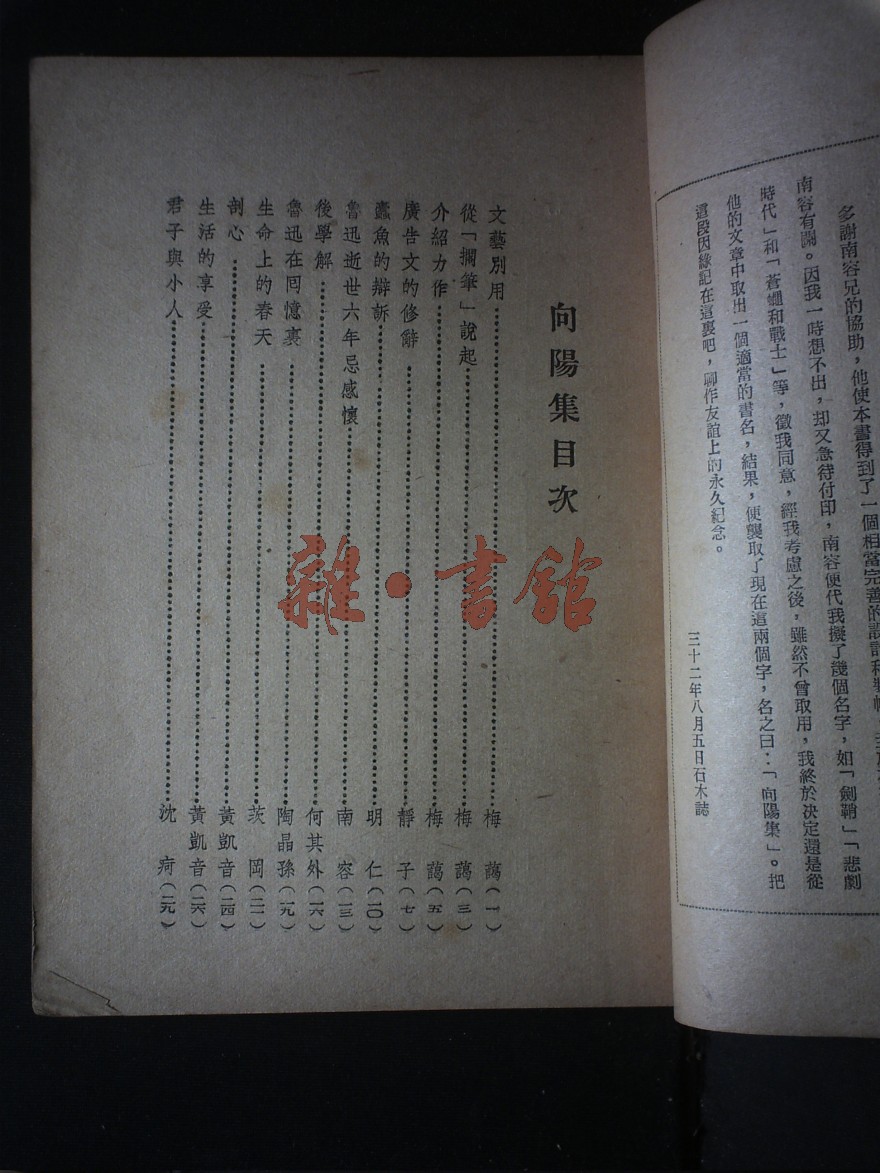 多謝南容兄的協助，他使本書得到了一個相當完善的設計和
南容有關。因我一時想不出，却又急待付印，南容便代我擬了幾個名字，如「劍鞘」「悲劇
時代」和「蒼蠅和戰士」等，徵我同意，經我考慮之後，雖然不曾取用，我終於決定還是從
他的文章中取出一個適當的書名，結果，便襲取了現在這兩個字，名之曰：「向陽集」。把
這段因緣記在這裏吧，聊作友誼上的永久紀念。
三十二年八月五日石木誌
向陽集目次
文藝別用⋯⋯梅藹（一）
從「擱筆」說起⋯⋯梅藹（三）
介紹力作⋯⋯梅藹（五）
廣告文的修辭⋯⋯靜子（七）
蠹魚的辯訴⋯⋯明仁（一〇）
魯迅逝世六年忌感懷⋯⋯南容（一三）
後學解⋯⋯何其外（一六）
魯迅在回憶裏⋯⋯陶晶孫（一九）
生命上的春天⋯⋯茨岡（二一）
剖心⋯⋯黃凱音（二四）
生活的享受⋯⋯黃凱音（二六）
君子與小人⋯⋯沈疴（二九）
雜·書館